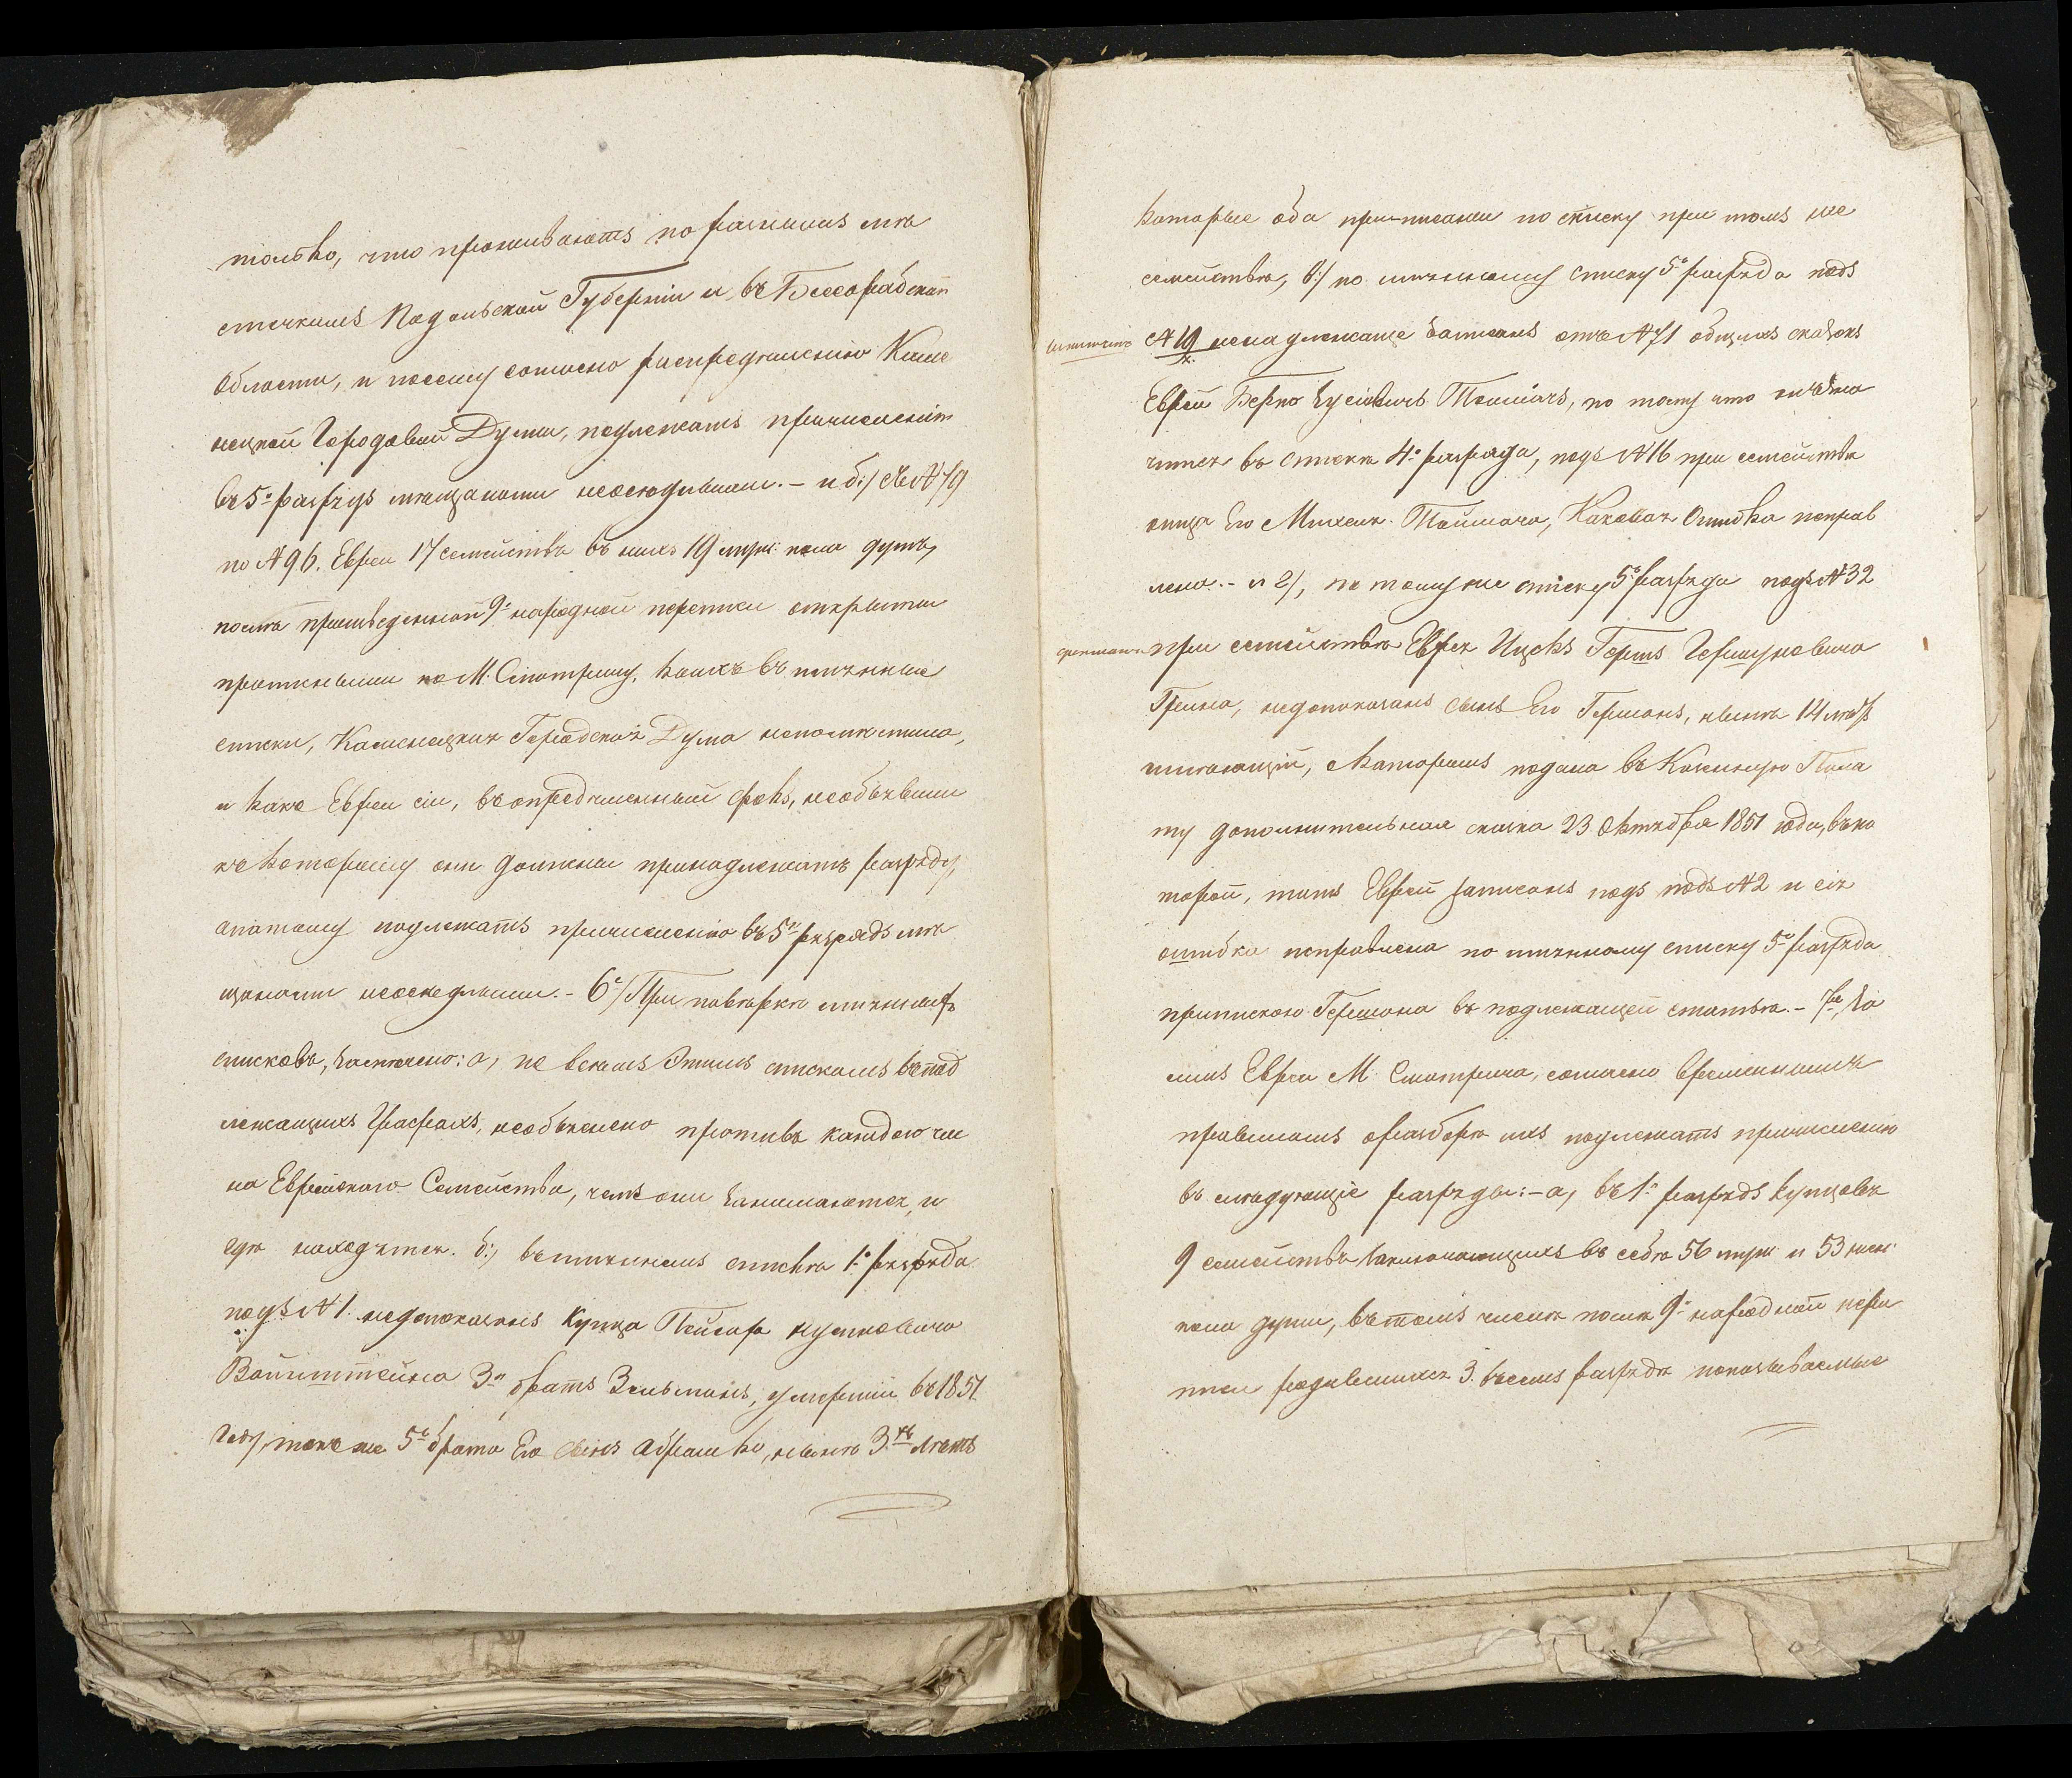 только, что проживаютъ по разнымъ мѣ
стечкамъ Подольской Губерніи и въ Бессарабской
Области, и посему согласно распредѣленію Каме
нецкой Городовой Думы, подлежатъ причисленію
въ 5й разрядъ мѣщанами неосѣдлыми. – и б:/ съ №79
по №96. Евреи 17 семействъ въ нихъ 19 муж: пола душъ,
послѣ произведенной 9й народной переписи открыты
прописными по М. Смотричу, коихъ въ именные
списки, Каменецкая Городская Дума непомѣстила,
и какъ Евреи сіи, въ опредѣленный срокъ, необъявили
къ которому они должны принадлежать разряду,
апотому подлежатъ причисленію въ 5й разрядъ мѣ
щанами неосѣдлыми. – 6е/ При повѣркѣ именныхъ
списковъ, замѣчено: а, по всѣмъ этимъ спискамъ въ под
лежащихъ Графахъ, необъяснено противъ каждого чле
на Еврейскаго Семейства, чемъ они занимаются, и
гдѣ находятся. б:/ въ именномъ спискѣ 1го разряда
подъ №1. недопоказанъ купца Пейсаха
Вайнштейна 3й братъ Зельманъ, умершій въ 1851.
Году, также 5го брата Его сынъ Абрашко, нынѣ 3хъ лѣтъ
которые оба приписаны по списку при томъ же
семействѣ, в:/ по именному списку 5го разряда подъ
№19 неподлежаще записанъ отъ №71 общихъ сказокъ
Еврей Берко Зусіовичъ, по тому что
чится въ спискѣ 4го разряда, подъ №16 при семействѣ
отца Его, Каковая Ошибка исправ
лена. – и г/, по тому же списку 5го разряда подъ №32
при семействѣ Еврея Ицскъ Гершъ Гершуновича
недопоказанъ сынъ Его Гершонъ, нынѣ 14 лѣтъ
имѣющій, которымъ подана въ Казенную Пала
ту дополнительная сказка 23 Октября 1851 года, въ ко
торой, тотъ Еврей записанъ подъ подъ №2 и сія
ошибка исправлена по именному списку 5го разряда
припискою Гершона въ подлежащей статьѣ. – 7е, За
симъ Евреи М. Смотрича, согласно временнымъ
правиламъ о разборѣ ихъ подлежатъ причисленію
въ слѣдующіе разряды: – а, въ 1й разрядъ купцовъ
9 семействъ заключающихъ въ себѣ 56 муж: и 53 жен:
пола души, въ томъ числѣ послѣ 9й народной пере
писи родившихся 3. въ семъ разрядѣ показываемые